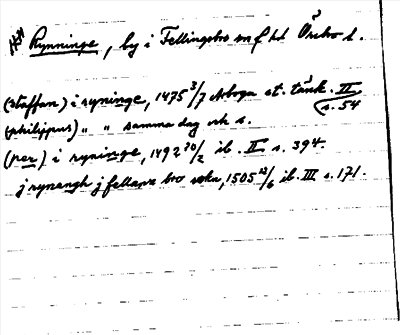 Rynninge, by i Fellingsbro sn f. hd Örebro l.
(staffan) i ryninge, 1475 3/7 Arboga st. tänk. II s. 54
(philippus) " " samma dag ock s.
(per) i ryninge, 1492 20/2 ib. II s. 394.
j rynengh j fellans bro sokn, 1505 23/6 ib. III s. 171.